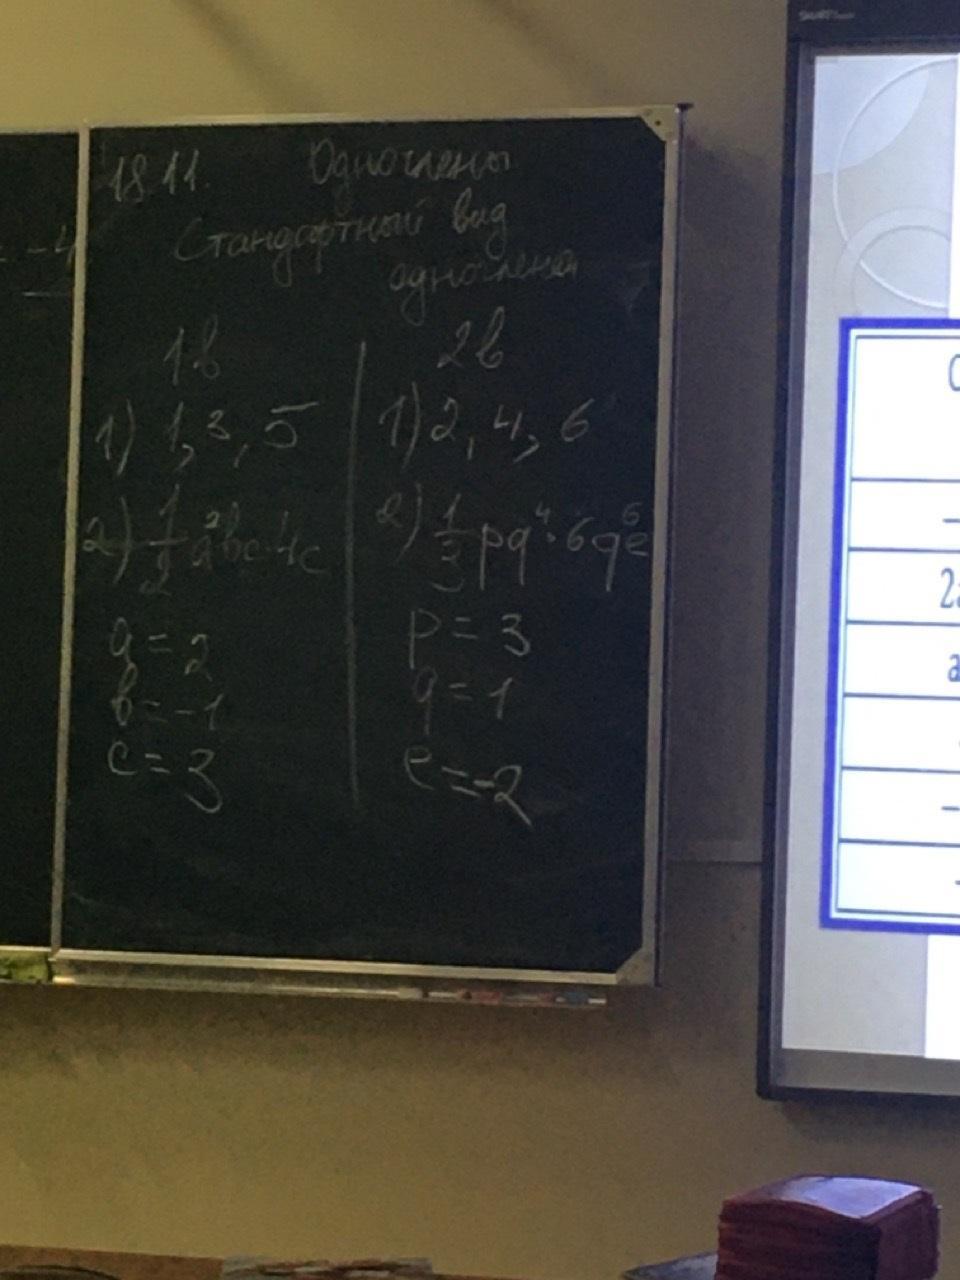 18.11. Одночлены
Стандартный вид
одночлена
= -4
1в
1) 1, 3, 5
2) 1/2 a²bc·4c
a = 2
b = -1
c = 3
2в
1) 2, 4, 6
2) 1/3 pq⁴·6qe⁶
p = 3
q = 1
e = -2
SMART
2a
a